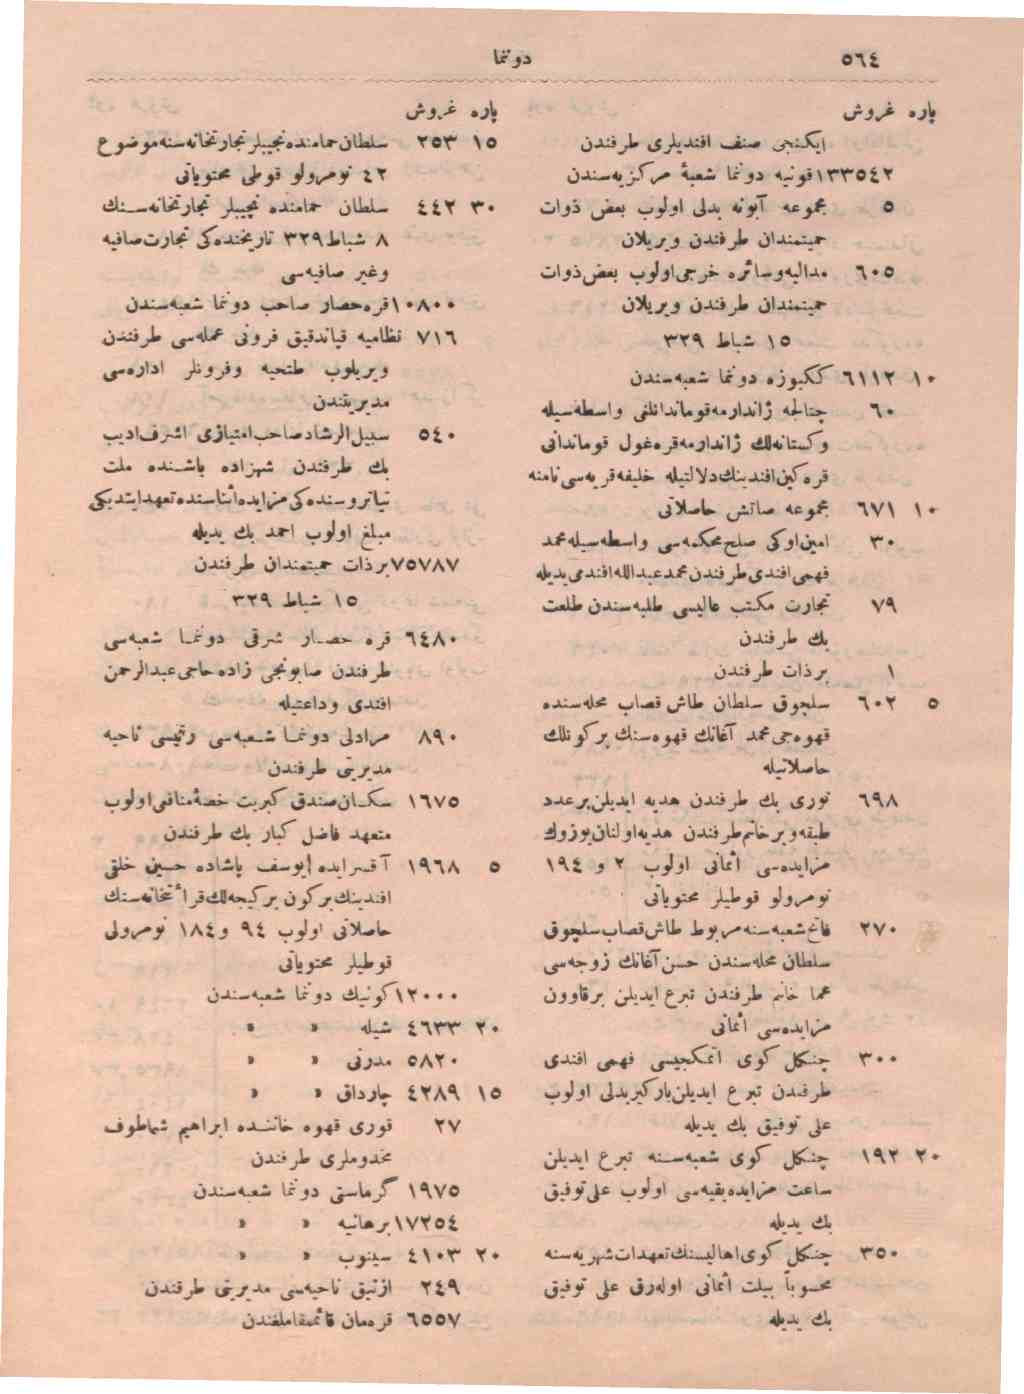 ٥٦٤
دوننما
پاره غروش
ایكنجی صنف افندیلری طرفندن
١٣٣٥٤٢ قونیه دوننما شعبهٔ مركزیه‌سندن
٥ مجموعه آبونه بدلی اولوب بعض ذوات
حمیتمندان طرفندن ویریلان
٦٠٥ مدالیه‌وسائره خرجی‌اولوب بعض‌ذوات
حمیتمندان طرفندن ویریلان
١٥ شباط ٣٢٩
١٠ ٦١١٢ ككبوزه دوننما شعبه‌سندن
٦٠ چتالجه ژاندارمه‌قوماندانلغی واسطه‌سیله
وكستانه‌لك ژاندارمه‌قره‌غول قوماندانی
قره‌كین‌افندینك‌دلالتیله خلیفه‌قریه‌سی‌نامنه
١٠ ٦٧١ مجموعه صاتش حاصلاتی
٣٠ امین‌اوكی صلح‌محكمه‌سی واسطه‌سیله‌محمد
فهمی‌افندی‌طرفندن‌محمدعبدالله‌افندمی‌یدیله
٧٩ تجارت مكتب عالیسی طلبه‌سندن طلعت
بك طرفندن
١ برذات طرفندن
٥ ٦٠٢ سلجوق سلطان طاش قصاب محله‌سنده
قهوه‌جی‌محمد آغانك قهوه‌سنك بركونلك
حاصلاتیله
٦٩٨ نوری بك طرفندن هدیه ایدیلن‌برعدد
طبقه‌وبرخانم‌طرفندن هدیه‌اولنان‌یوزوك
مزایده‌سی أثمانی اولوب ٢ و ١٩٤
نومرولو قوطیلر محتویاتی
٢٧٠ فاتح‌شعبه‌سنه‌مربوط طاش‌قصاب‌سلجوق
سلطان محله‌سندن حسن‌آغانك زوجه‌سی
عما خانم طرفندن تبرع ایدیلن برقاوون
مزایده‌سی أثمانی
٣٠٠ چنكل كوی اتمكجیسی فهمی افندی
طرفندن تبرع ایدیلن‌باركیربدلی اولوب
علی توفیق بك یدیله
٢٠ ١٩٢ چنكل كوی شعبه‌سنه تبرع ایدیلن
ساعت مزایده‌بقیه‌سی اولوب علی‌توفیق
بك یدیله
٣٥٠ چنكل كوی‌اهالیسنك‌تعهدات‌شهریه‌سنه
محسوباً بیلت أثمانی اوله‌رق علی توفیق
بك یدیله
پاره غروش
١٥ ٢٥٣ سلطان‌حمامنده‌نجیبلرتجارتخانه‌سنه‌موضوع
٤٢ نومرولو قوطی محتویاتی
٣٠ ٤٤٢ سلطان حمامنده نجیبلر تجارتخانه‌سنك
٨ شباط‌٣٢٩ تاریخنده‌كی تجارت‌صافیه
وغیر صافیه‌سی
١٠٨٠٠ قره‌حصار صاحب دوننما شعبه‌سندن
٧١٦ نظامیه قپاندقیق فرونی عمله‌سی طرفندن
ویریلوب طحنیه وفرونلر اداره‌سی
مدیریتندن
٥٤٠ سبیل‌الرشادصاحب‌امتیازی اشرف‌ادیب
بك طرفندن شهزاده باشنده ملت
تیاتروسنده‌كی‌مزایده‌أثناسنده‌تعهدایتدیكی
مبلغ اولوب احمد بك یدیله
٧٥٧٨٧ برذات حمیتمندان طرفندن
١٥ شباط ٣٢٩
٦٤٨٠ قره حصار شرقی دوننما شعبه‌سی
طرفندن صابونجی زاده حاجی‌عبدالرحمن
افندی وداعتیله
٨٩٠ مرادلی دوننما شعبه‌سی رئیسی ناحیه
مدیریتی طرفندن
١٦٧٥ سكسان‌صندق كبریت حصهٔ‌منافعی‌اولوب
متعهد فاضل كبار بك طرفندن
٥ ١٩٦٨ آقسرایده یوسف پاشاده حسین خلقی
افندینك‌بركون بركیجه‌لك‌قرائتخانه‌سنك
حاصلاتی اولوب ٩٤ و١٨٤ نومرولی
قوطیلر محتویاتی
١٢٠٠٠ كونیك دوننما شعبه‌سندن
٢٠ ٤٦٣٣ شیله » »
٥٨٢٠ مدرنی » »
١٥ ٤٢٨٩ چارداق » »
٢٧ قوری قهوه خاننده ابراهیم شماطوف
مخدوملری طرفندن
١٩٧٥ گرماستی دوننما شعبه‌سندن
١٧٢٥٤ برهانیه » »
٢٠ ٤١٠٣ سینوب » »
٢٤٩ ازنیق ناحیه‌سی مدیریتی طرفندن
٦٥٥٧ قره‌مان قائممقاملغندن